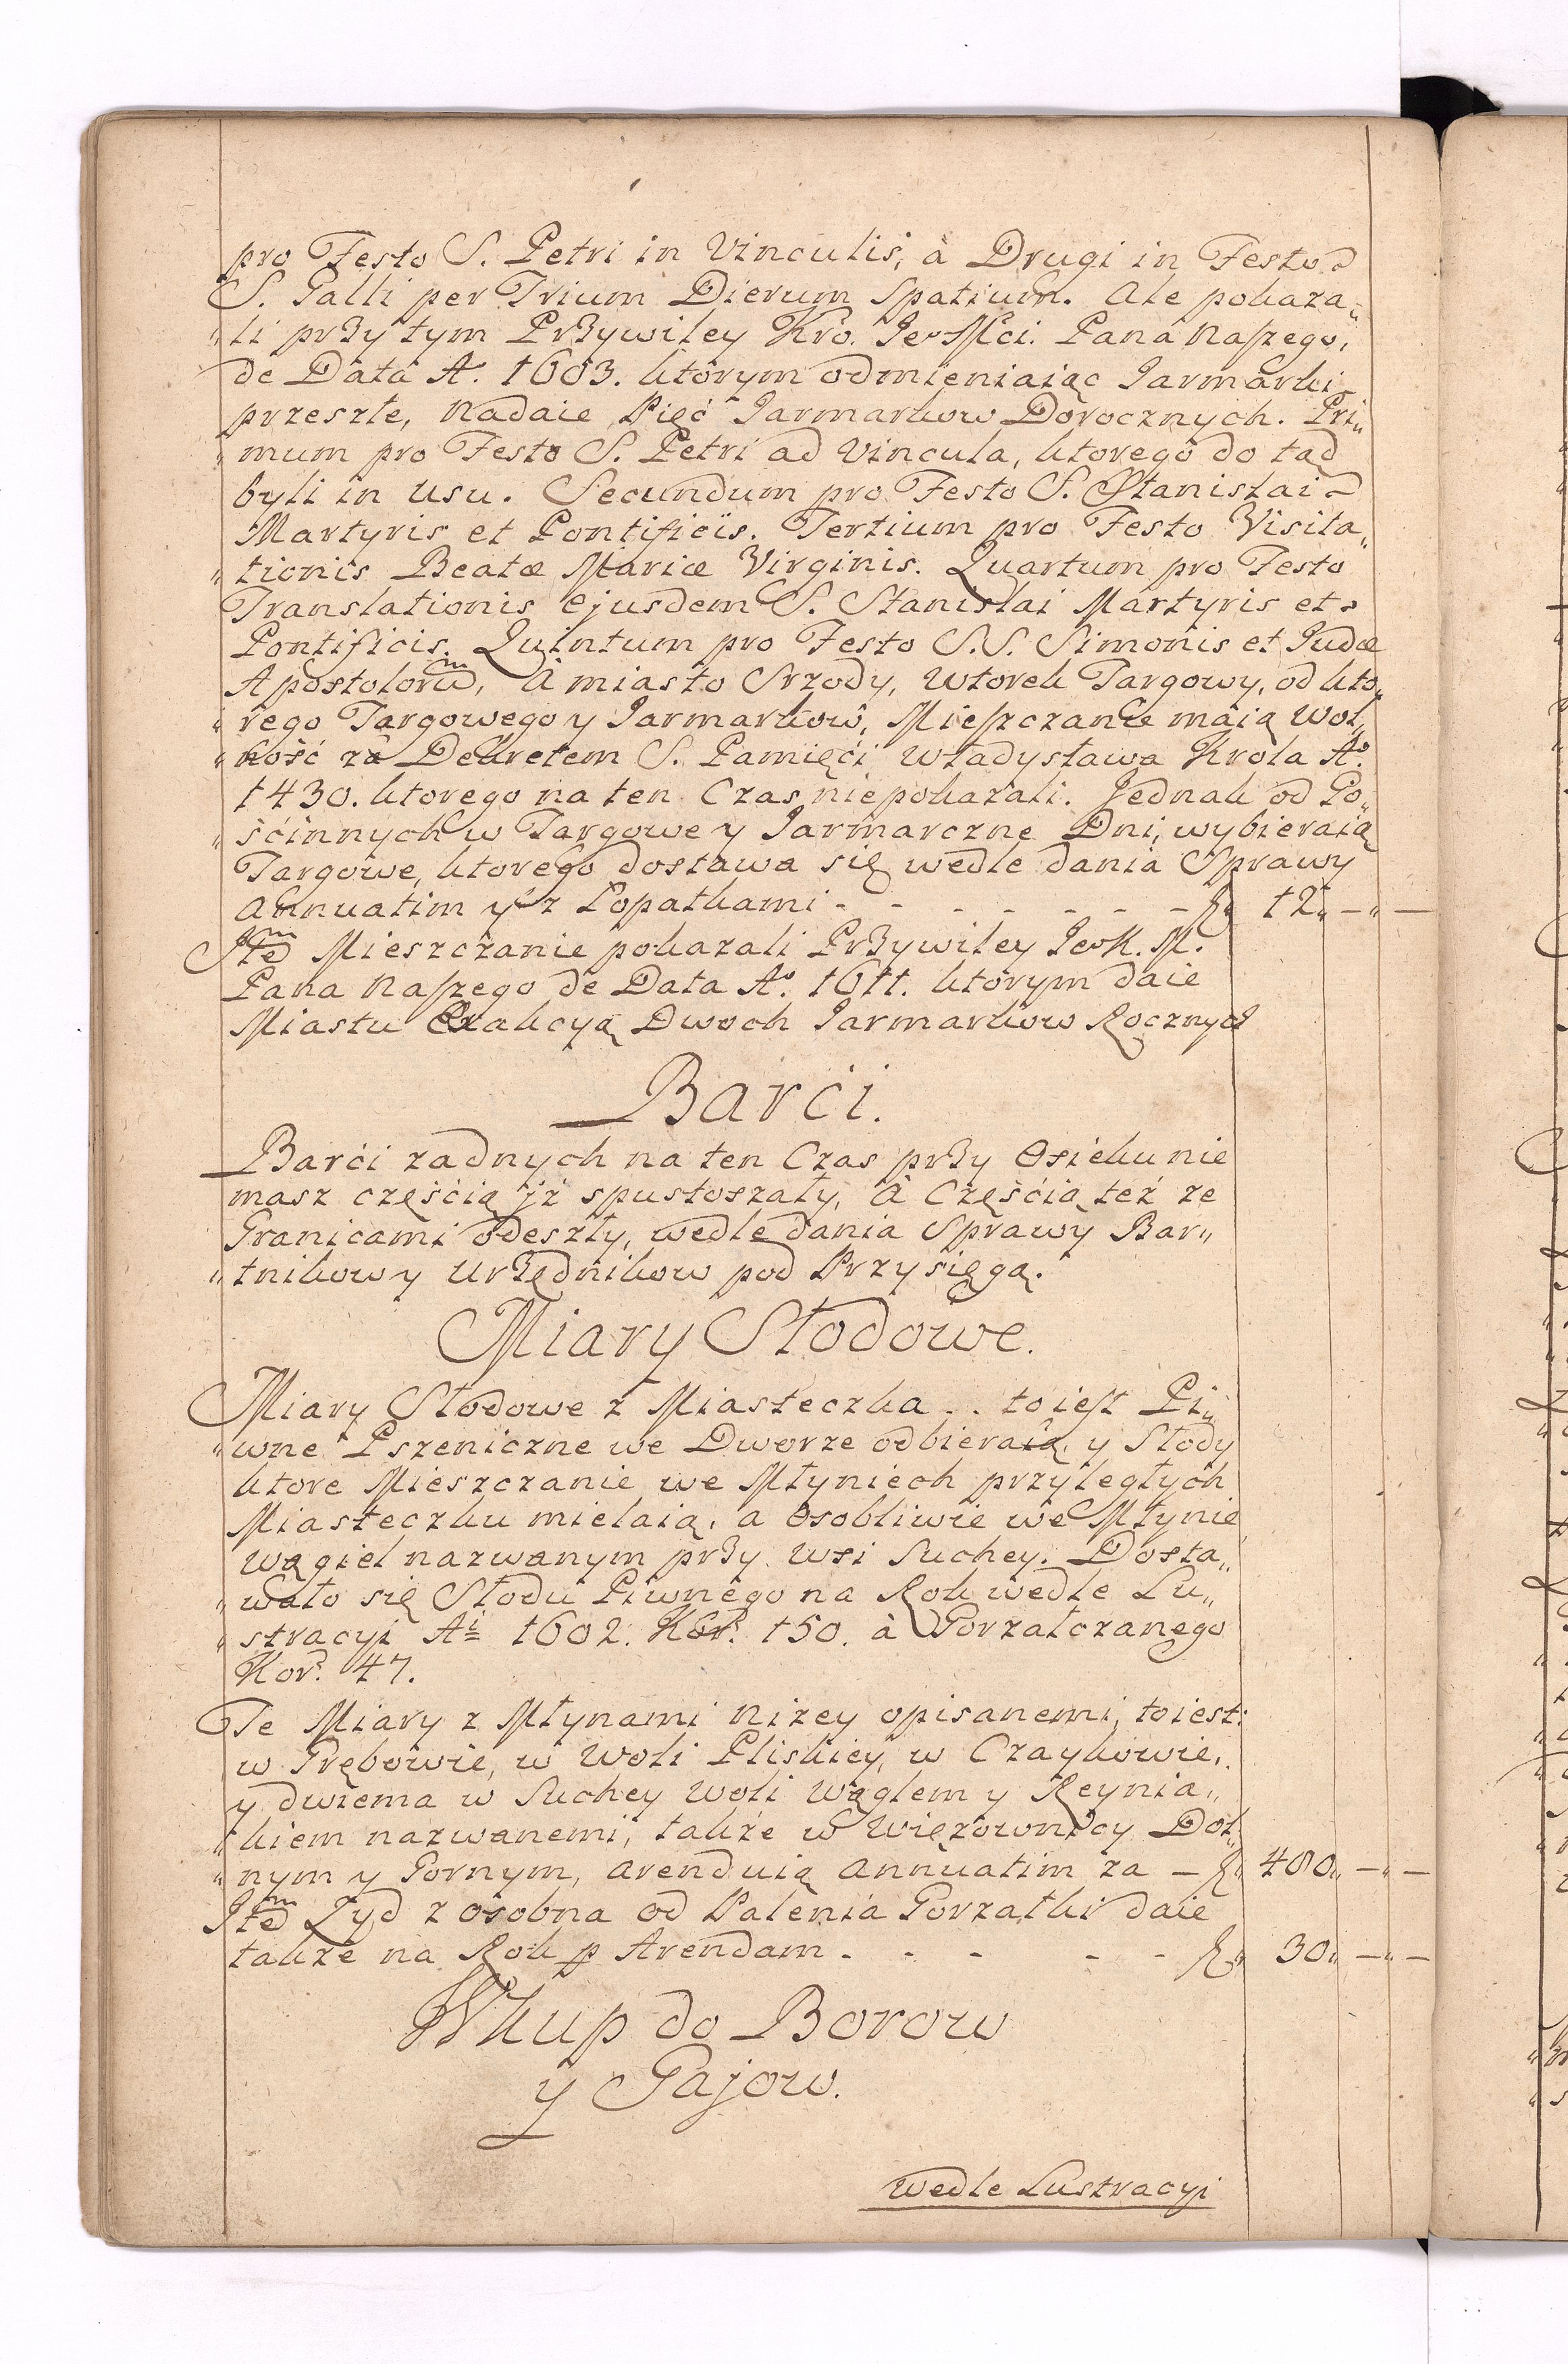 pro Festo S. Petri in Vinculis, à Drugi in Festo
S. Galli per Trium Dierum Spatium. Ale pokaza„
„li przy tym Przywiley Kro. Je° Mci. Pana naszego,
de Data A°. 1603. ktorym odmieniaiąc Jarmarki
przeszłe, nadaie Pięć Jarmarkow Dorocznych. Pri„
„mum pro Festo S. Petri ad Vincula, ktorego do tąd
byli in usu. Secundum pro Festo S. Stanislai
Martyris et Pontificis. Tertium pro Festo Visita„
„tionis Beatæ Mariæ Virginis. Quartum pro Festo
Translationis ejusdem S. Stanislai Martyris et
Pontificis. Quintum pro Festo S.S. Simonis et Judæ
Apostolorum̃, à miasto Srzody, Wtorek Targowy, od kto„
„rego Targowego y Jarmarkow, Mieszczanie maią Wol„
„ność za Dekretem S. Pamięći Władysława Krola A°.
1430. ktorego na ten Czas niepokazali. Jednak od Go„
„śćinnych w Targowe y Jarmarczne Dni, wybieraią
Targowe, ktorego dostawa się wedle dania Sprawy
annuatim y z Łopatkami - - - - - - - f„ 12„ —„—
Itm̃ Mieszczanie pokazali Przywiley Je°K. M.
Pana naszego de Data A°. 1611. ktorym daie
Miastu Exakcyą Dwoch Jarmarkow Rocznych
Barći.
Barći zadnych na ten Czas przy Osieku nie
masz częśćią jż spustoszały, à Częśćią też ze
Granicami odeszły, wedle dania Sprawy Bar„
„tnikow y Urzędnikow pod Przysięgą.
Miary Słodowe.
Miary Słodowe z Miasteczka .. to iest Pi„
„wne Pszeniczne we Dworze odbieraią, y Słody
ktore Mieszczanie we Młyniech przyległych
Miasteczku mielaią, a osobliwie we Młynie
Wągiel nazwanym przy Wsi Suchey. Dosta„
„wało się Słodu Piwnego na Rok wedle Lu„
„stracyi Ai 1602. Kor. 150. à Gorzałczanego
Kor. 47.
Te Miary z Młynami niżey opisanemi, toiest:
w Grębowie, w Woli Pliskiey, w Czaykowie,
y dwiema w Suchey Woli Wąglem y Reynia„
„kiem nazwanemi, także w Więzownicy Dol„
„nym y Gornym, arenduią annuatim za — f„ 400„ —„—
Itm̃ Zyd z osobna od Palenia Gorzałki daie
także na Rok p Arendam - - - - - f„ 30„ —„—
Wkup do Borow
y Gajow.
wedle Lustracyi